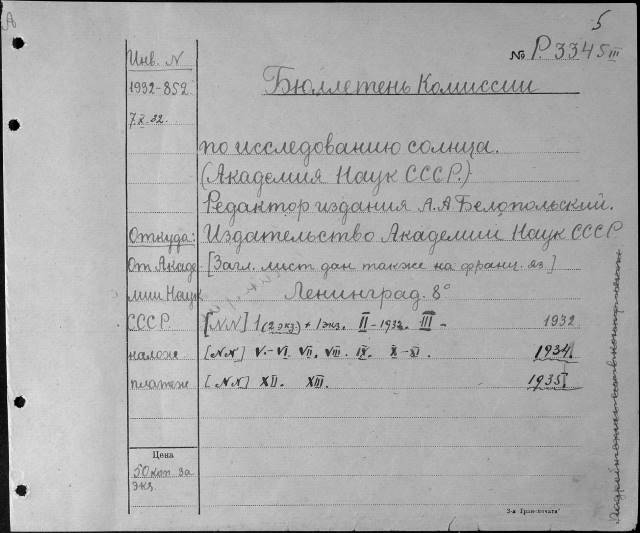 А
5
№ Р.3345 III
Инв. N
1932-852
7.X.32.
Бюллетень Комиссии
по исследованию солнца.
(Академия Наук СССР.)
Редактор издания А.А Белопольский.
Откуда: Издательство Академии Наук СССР
От Акаде [Загл. лист дан также на франц. яз.]
мии Наук Ленинград. 8°
СССР. [NN] 1 (2 экз) + 1 экз. II - 1932. III - 1932
налож [NN] V.-VI. VII. VIII. IX. X-XI. 1934
платеж [NN] XII. XIII. 1935
Цена
50 коп за
экз.